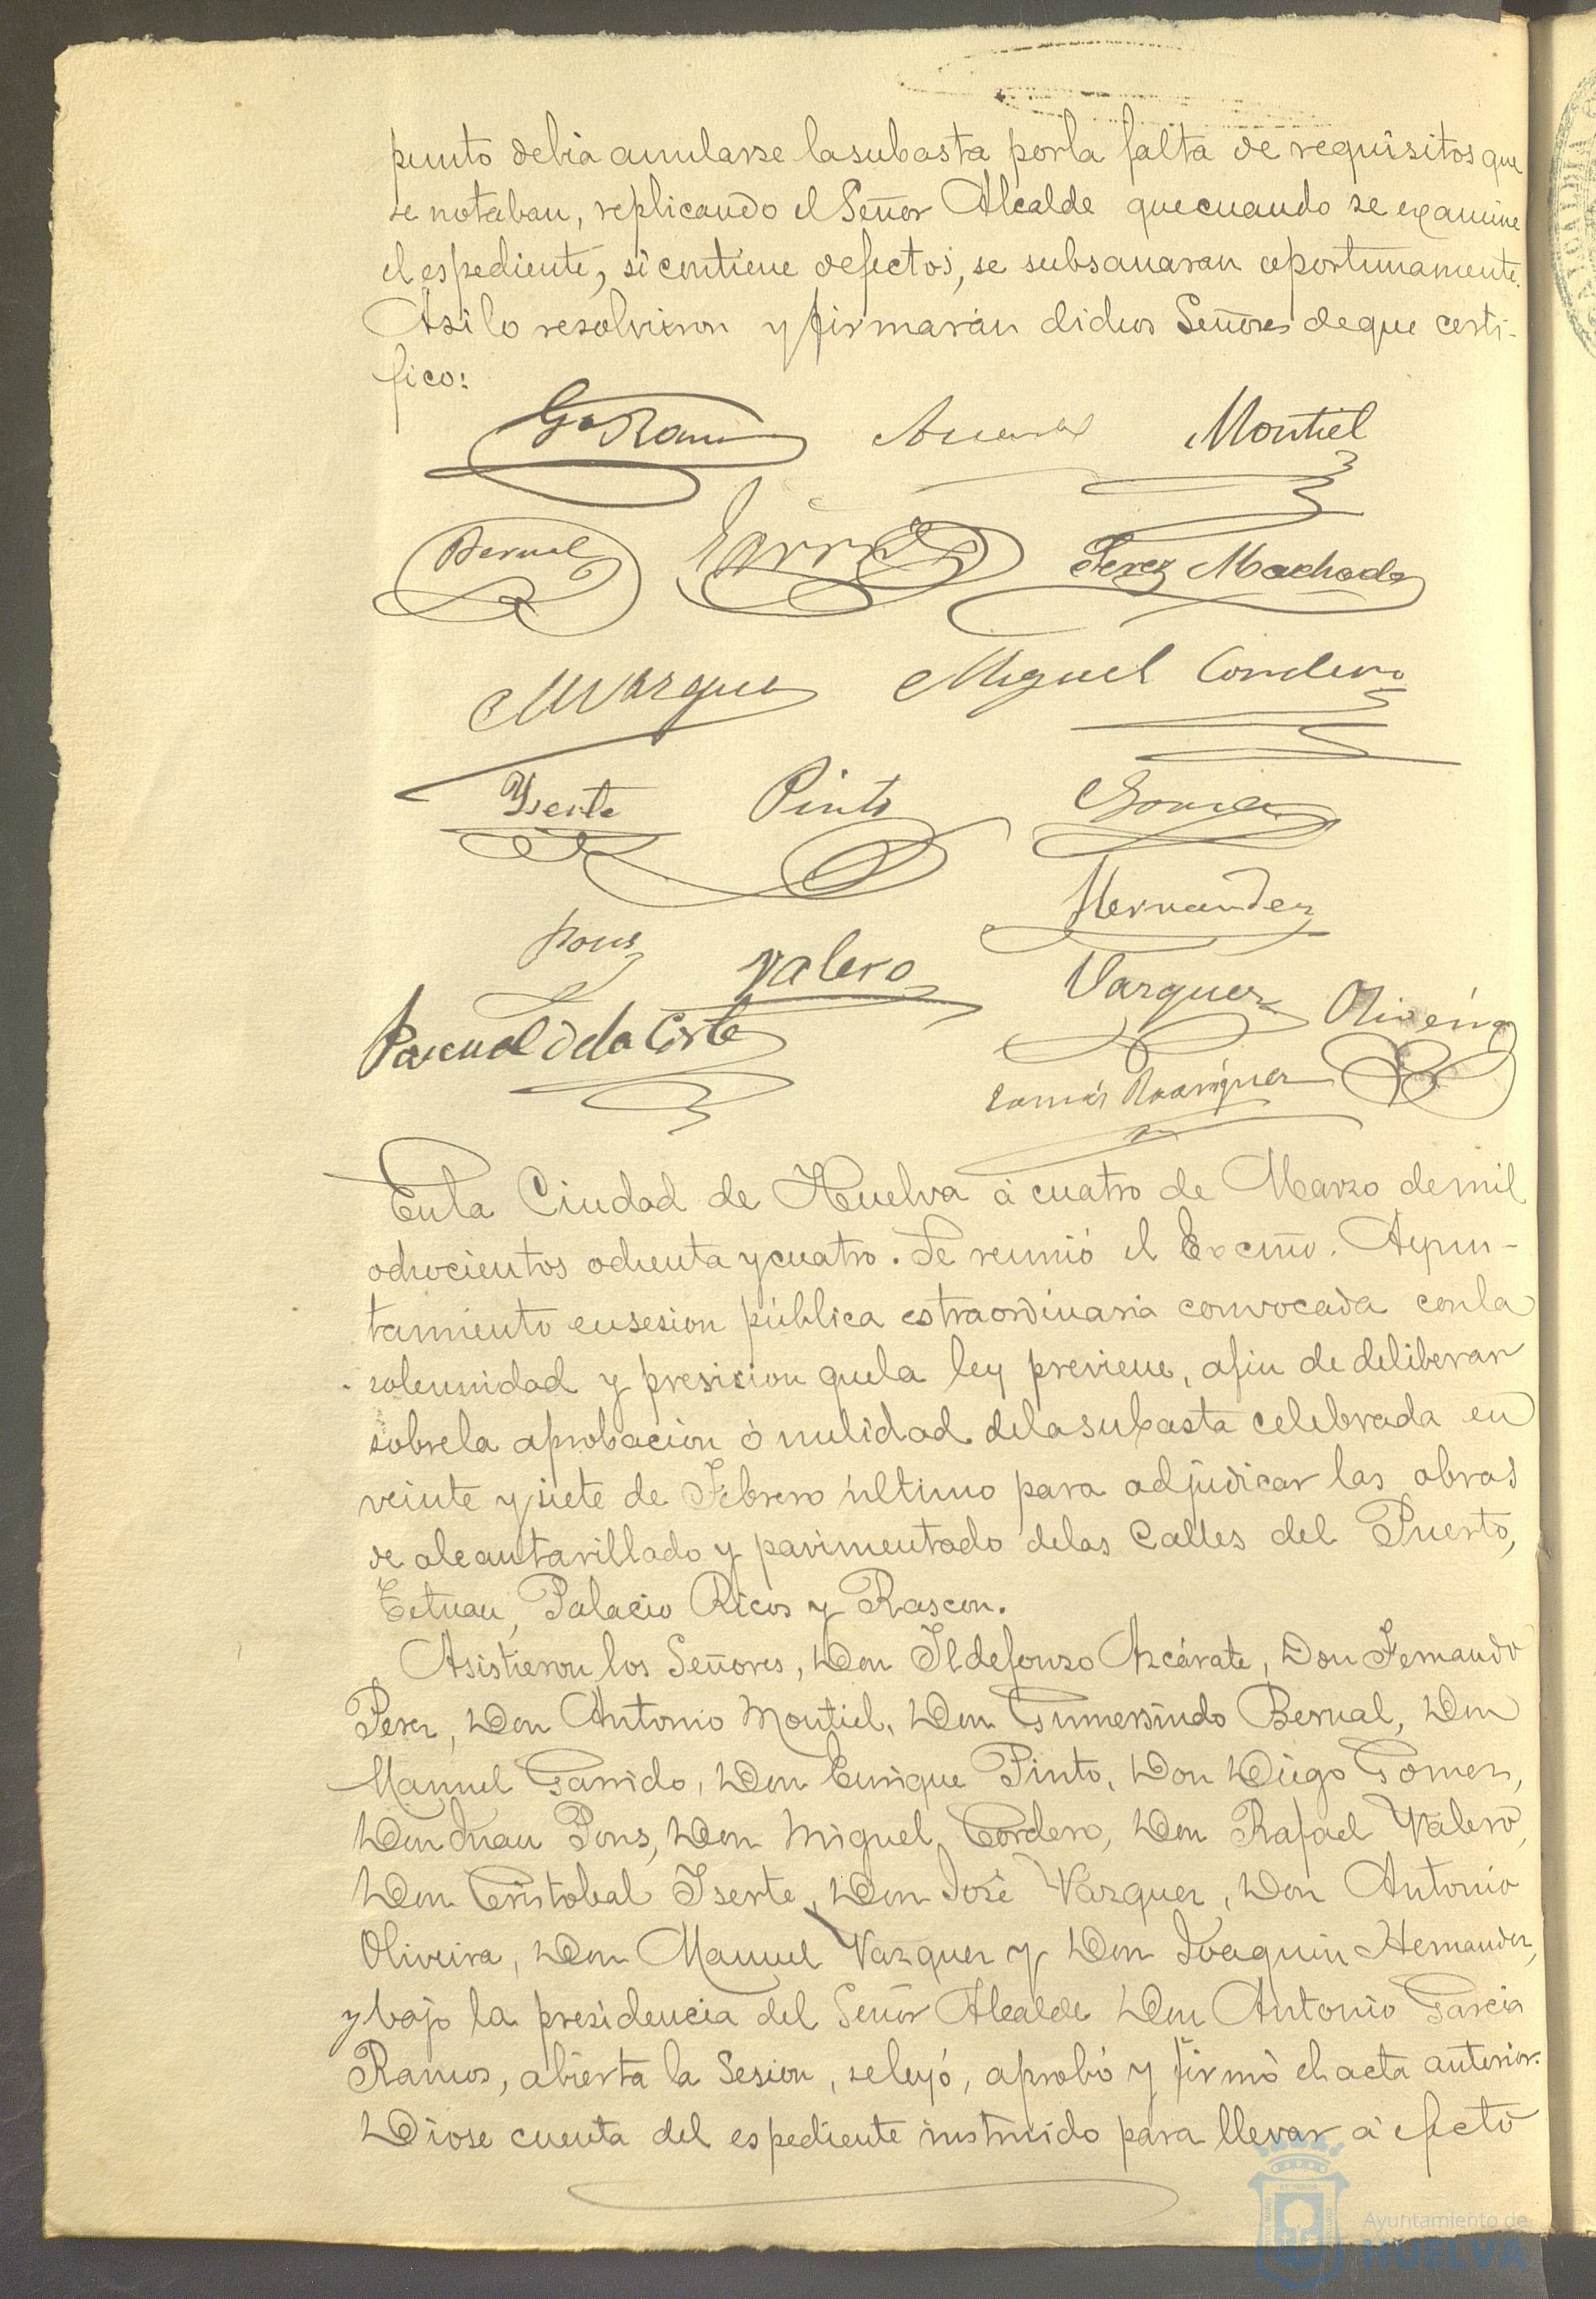 punto debia anularse la subasta por la falta de requisitos que
se notaban, replicando el Señor Alcalde que cuando se examine
el espediente, si contiene defectos, se subsanaran oportunamente.
Asi lo resolvieron y firmarán dichos Señores de que certi-
fico:
Gª Ramos Montiel
Bernal Garrido Perez Machado
M Vazquez Miguel Cordero
Yserte Pinto Gomez
Hernandez
Pons Valero Vazquez Oliveira
Pascual de la Corte
Tomás Rodriguez
En la Ciudad de Huelva á cuatro de Marzo de mil
ochocientos ochenta y cuatro. Se reunió el Excmo. Ayun-
tamiento en sesion pública estraordinaria convocada con la
solemnidad y presicion que la ley previene, afin de deliberar
sobre la aprobacion ó nulidad de la subasta celebrada en
veinte y siete de Febrero último para adjudicar las obras
de alcantarillado y pavimentado de las Calles del Puerto,
Tetuan, Palacio Ricos y Rascon.
Asistieron los Señores, Don Ildefonso Azcárate, Don Fernando
Perez, Don Antonio Montiel, Don Gumersindo Bernal, Don
Manuel Garrido, Don Enrique Pinto, Don Diego Gomez,
Don Juan Pons, Don Miguel Cordero, Don Rafael Valero,
Don Cristobal Iserte, Don José Vazquez, Don Antonio
Oliveira, Don Manuel Vazquez y Don Joaquin Hernandez,
y bajo la presidencia del Señor Alcalde Don Antonio Garcia
Ramos, abierta la Sesion, se leyó, aprobó y firmó el acta anterior.
Diose cuenta del espediente instruido para llevar á efecto
Ayuntamiento de
HUELVA